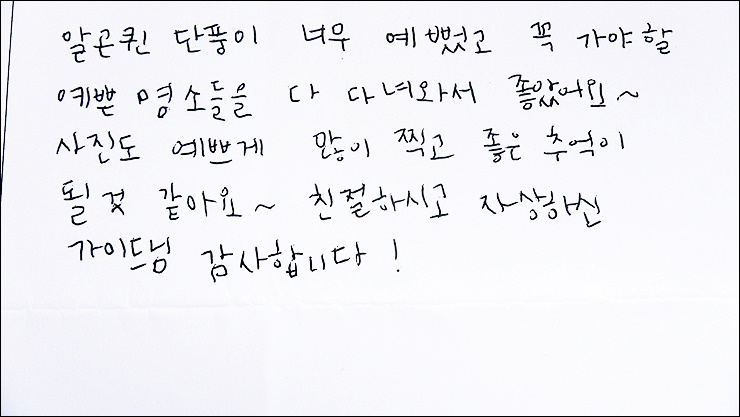 알곤퀸 단풍이 너무 예뻤고 꼭 가야할
예쁜 명소들을 다 다녀와서 좋았어요~
사진도 예쁘게 많이 찍고 좋은 추억이
될것 같아요~ 친절하시고 자상하신
가이드님 감사합니다!